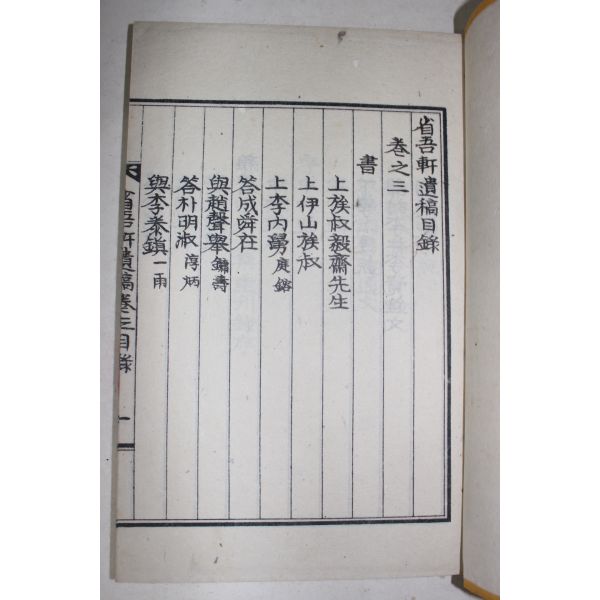 省吾軒遺稿目錄
卷之三
書
上族叔毅齋先生
上伊山族叔
上李內舅庭鎔
答成舜在
與趙聲與鏞壽
答朴明淑淳炳
與李泰鎮一雨
省吾軒遺稿卷之三目錄 一